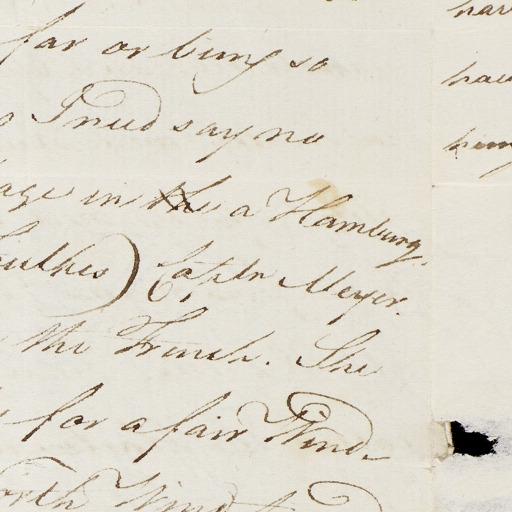 far or being so
I need say no
in the a Hamburg
Captn Meyer.
the French. She
for a fair Wind
North Wind